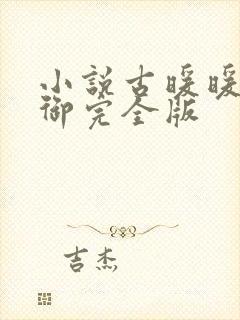 小說古暖暖
御完全版
吉杰